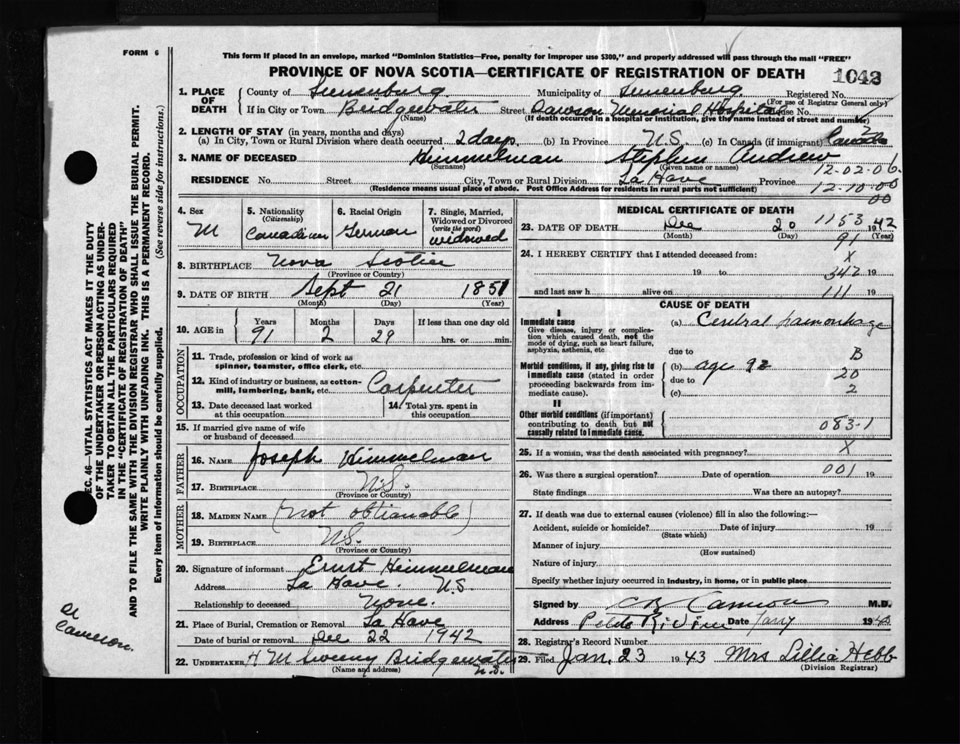 FORM 6
This form if placed in an envelope, marked "Dominion Statistics—Free, penalty for improper use $300," and properly addressed will pass through the mail "FREE"
PROVINCE OF NOVA SCOTIA—CERTIFICATE OF REGISTRATION OF DEATH 1042
1. PLACE OF DEATH County of Lunenburg Municipality of Lunenburg Registered No.
(For use of Registrar General only)
If in City or Town Bridgewater Street Dawson Memorial Hospital House No.
(Name) (If death occurred in a hospital or institution, give the name instead of street and number)
2. LENGTH OF STAY (in years, months and days)
(a) In City, Town or Rural Division where death occurred 2 days. (b) In Province N.S. (c) In Canada (if immigrant) Canada
3. NAME OF DECEASED Himmelman Stephen Andrew
(Surname) (Given name or names) 12-02-06.
RESIDENCE No. Street City, Town or Rural Division La Have Province 12-10-00
(Residence means usual place of abode. Post Office Address for residents in rural parts not sufficient) 00
4. Sex M
5. Nationality (Citizenship) Canadian
6. Racial Origin German
7. Single, Married, Widowed or Divorced (write the word) widowed
8. BIRTHPLACE Nova Scotia
(Province or Country)
9. DATE OF BIRTH Sept 21 1851
(Month) (Day) (Year)
10. AGE in Years 91 Months 2 Days 29 If less than one day old hrs. or min.
OCCUPATION
11. Trade, profession or kind of work as spinner, teamster, office clerk, etc.
12. Kind of industry or business, as cotton-mill, lumbering, bank, etc. Carpenter
13. Date deceased last worked at this occupation
14. Total yrs. spent in this occupation
15. If married give name of wife or husband of deceased
FATHER
16. NAME Joseph Himmelman
17. BIRTHPLACE N.S.
(Province or Country)
MOTHER
18. MAIDEN NAME (not obtianable)
19. BIRTHPLACE N.S.
(Province or Country)
20. Signature of informant Ernst Himmelman
Address La Have. N.S.
Relationship to deceased None.
21. Place of Burial, Cremation or Removal La Have
Date of burial or removal Dec 22 1942
22. UNDERTAKER H M Sweeny Bridgewater N.S.
(Name and address)
MEDICAL CERTIFICATE OF DEATH
23. DATE OF DEATH Dec 20 1153 1942
(Month) (Day) (Year)
91
24. I HEREBY CERTIFY that I attended deceased from:
X
19 to 342 19
and last saw h alive on 111 19
CAUSE OF DEATH
I
Immediate cause
Give disease, injury or complication which caused death, not the mode of dying, such as heart failure, asphyxia, asthenia, etc
(a) Cerebral haemorrhage
due to B
Morbid conditions, if any, giving rise to immediate cause (stated in order proceeding backwards from immediate cause).
(b) age 92 20
due to 2
(c)
II
Other morbid conditions (if important) contributing to death but not causally related to immediate cause.
083-1
25. If a woman, was the death associated with pregnancy? X
26. Was there a surgical operation? Date of operation 001 19
State findings Was there an autopsy?
27. If death was due to external causes (violence) fill in also the following:—
Accident, suicide or homicide? Date of injury 19
(State which)
Manner of injury
(How sustained)
Nature of injury
Specify whether injury occurred in industry, in home, or in public place
Signed by M.D.
Address Petite Riviere Date Jany 194
28. Registrar's Record Number
29. Filed Jan. 23 1943 Mrs Lillia Hebb
(Division Registrar)
SEC. 46—VITAL STATISTICS ACT MAKES IT THE DUTY OF THE UNDERTAKER OR PERSON ACTING AS UNDERTAKER TO OBTAIN ALL THE PARTICULARS REQUIRED IN THE "CERTIFICATE OF REGISTRATION OF DEATH" AND TO FILE THE SAME WITH THE DIVISION REGISTRAR WHO SHALL ISSUE THE BURIAL PERMIT.
WRITE PLAINLY WITH UNFADING INK. THIS IS A PERMANENT RECORD.
Every item of Information should be carefully supplied. (See reverse side for instructions.)
Cameron.